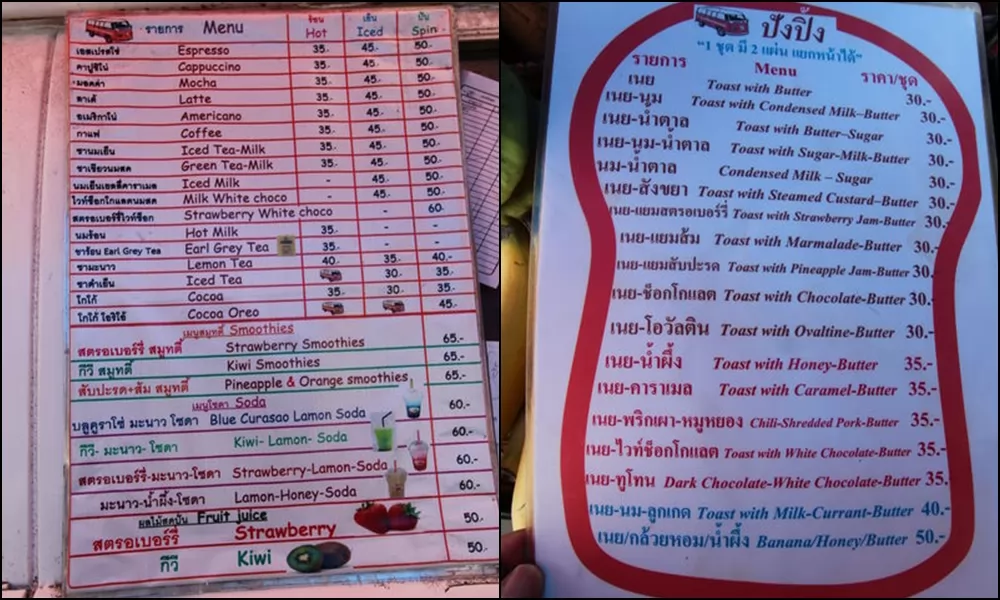 รายการ Menu ร้อน Hot เย็น Iced ปั่น Spin
เอสเปรสโซ่ Espresso 35.- 45.- 50.-
คาปูชิโน่ Cappuccino 35.- 45.- 50.-
มอคค่า Mocha 35.- 45.- 50.-
ลาเต้ Latte 35.- 45.- 50.-
อเมริกาโน่ Americano 35.- 45.- 50.-
กาแฟ Coffee 35.- 45.- 50.-
ชานมเย็น Iced Tea-Milk 35.- 45.- 50.-
ชาเขียวนมสด Green Tea-Milk 35.- 45.- 50.-
นมเย็นเฮลตี้คาราเมล Iced Milk - 45.- 50.-
ไวท์ช็อกโกแลตนมสด Milk White choco - 45.- 50.-
สตรอเบอร์รี่ไวท์ช็อก Strawberry White choco - - 60.-
นมร้อน Hot Milk 35.- - -
ชาร้อน Earl Grey Tea Earl Grey Tea 35.- - -
ชามะนาว Lemon Tea 40.- 35.- 40.-
ชาดำเย็น Iced Tea 30.- 35.-
โกโก้ Cocoa 35.- 30.- 35.-
โกโก้ โอริโอ้ Cocoa Oreo 45.-
เมนูสมูทตี้ Smoothies
สตรอเบอร์รี่ สมูทตี้ Strawberry Smoothies 65.-
กีวี สมูทตี้ Kiwi Smoothies 65.-
สับปะรด+ส้ม สมูทตี้ Pineapple & Orange smoothies 65.-
เมนูโซดา Soda
บลูคูราโซ่ มะนาว โซดา Blue Curasao Lamon Soda 60.-
กีวี- มะนาว- โซดา Kiwi- Lamon- Soda 60.-
สตรอเบอร์รี่-มะนาว-โซดา Strawberry-Lamon-Soda 60.-
มะนาว-น้ำผึ้ง-โซดา Lamon-Honey-Soda 60.-
ผลไม้สดปั่น Fruit juice
สตรอเบอร์รี่ Strawberry 50.-
กีวี Kiwi 50.-
ปังปิ้ง
"1 ชุด มี 2 แผ่น แยกหน้าได้"
รายการ Menu ราคา/ชุด
เนย Toast with Butter 30.-
เนย-นม Toast with Condensed Milk–Butter 30.-
เนย-น้ำตาล Toast with Butter–Sugar 30.-
เนย-นม-น้ำตาล Toast with Sugar-Milk-Butter 30.-
นม-น้ำตาล Condensed Milk – Sugar 30.-
เนย-สังขยา Toast with Steamed Custard–Butter 30.-
เนย-แยมสตรอเบอร์รี่ Toast with Strawberry Jam-Butter 30.-
เนย-แยมส้ม Toast with Marmalade-Butter 30.-
เนย-แยมสับปะรด Toast with Pineapple Jam-Butter 30.
เนย-ช็อกโกแลต Toast with Chocolate-Butter 30.-
เนย-โอวัลติน Toast with Ovaltine-Butter 30.-
เนย-น้ำผึ้ง Toast with Honey-Butter 35.-
เนย-คาราเมล Toast with Caramel-Butter 35.-
เนย-พริกเผา-หมูหยอง Chili-Shredded Pork-Butter 35.-
เนย-ไวท์ช็อกโกแลต Toast with White Chocolate-Butter 35.-
เนย-ทูโทน Dark Chocolate-White Chocolate-Butter 35.
เนย-นม-ลูกเกด Toast with Milk-Currant-Butter 40.-
เนย/กล้วยหอม/น้ำผึ้ง Banana/Honey/Butter 50.-